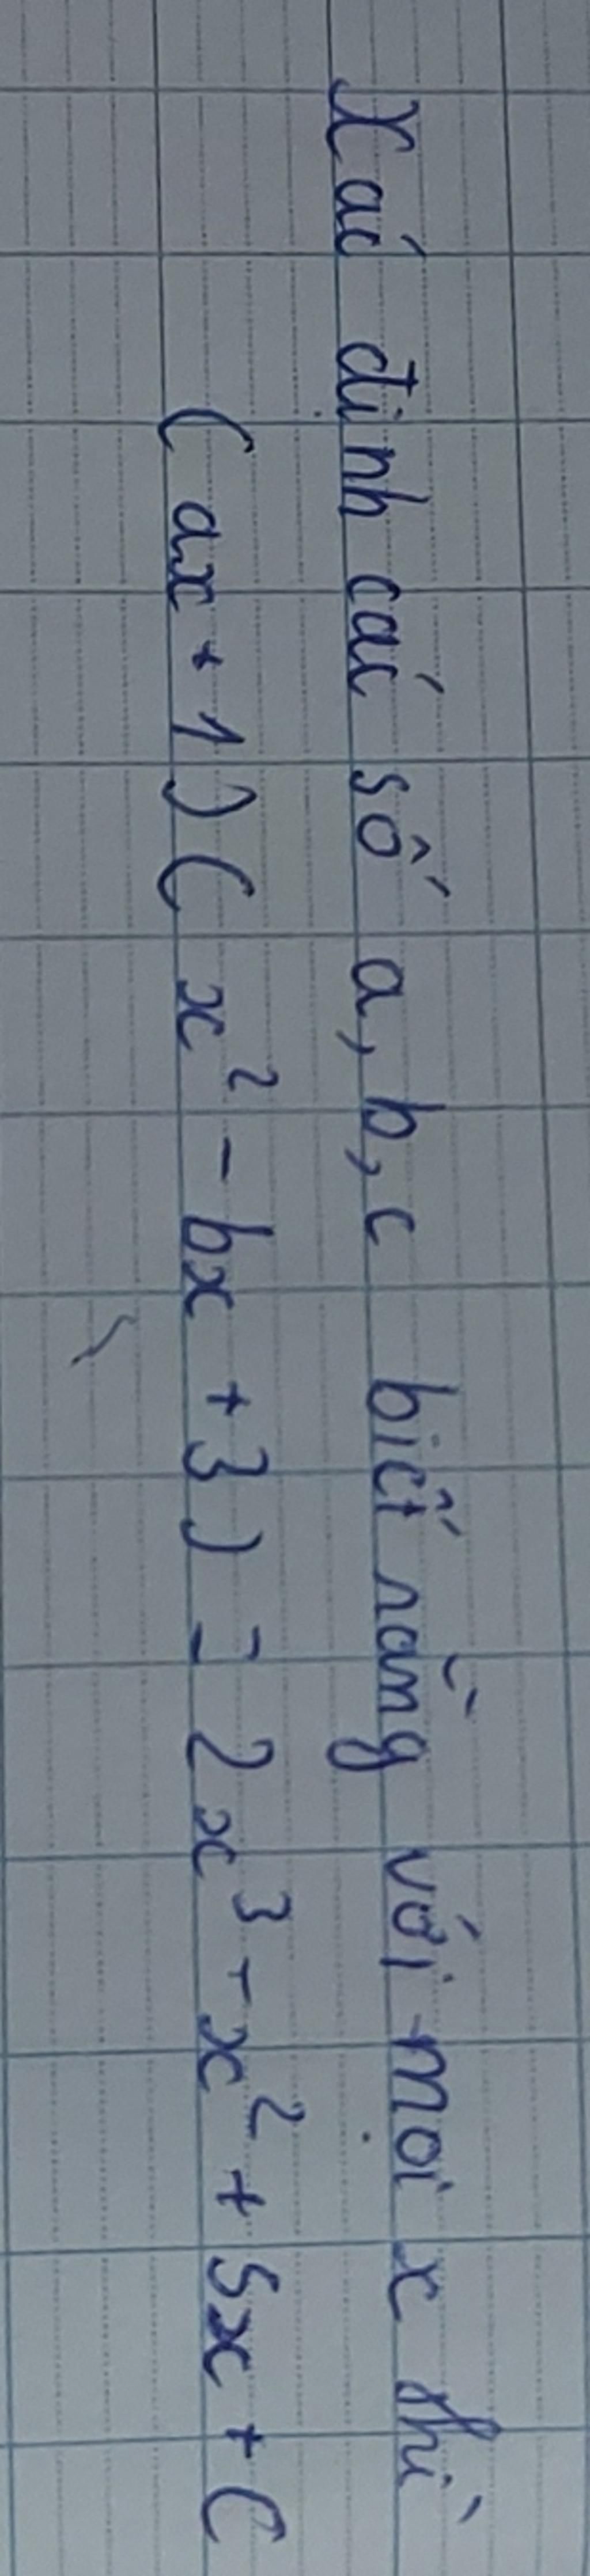 Xác định các số a, b, c biết rằng với mọi x thì
(ax + 1)(x² - bx + 3) = 2x³ - x² + 5x + C